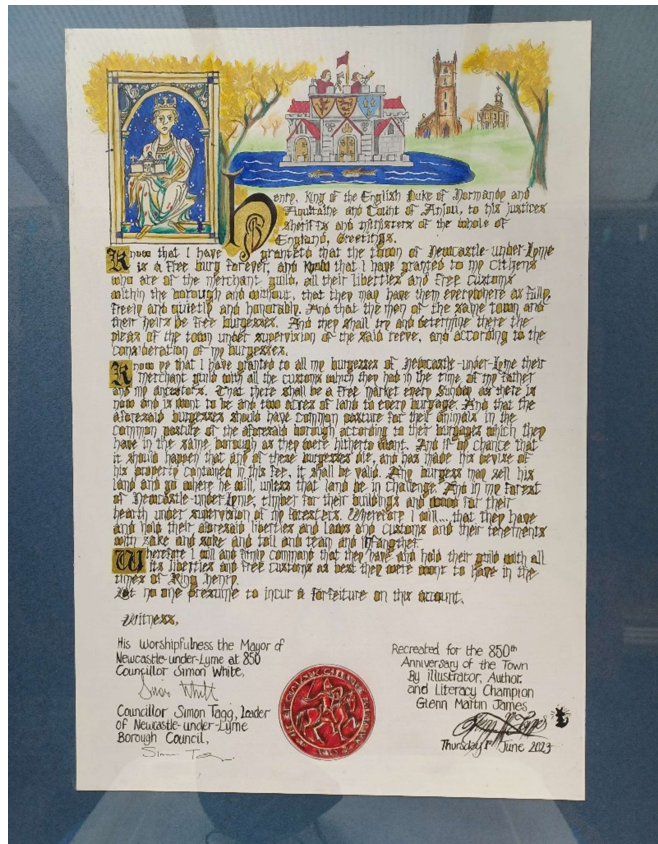 Henry, King of the English Duke of Normandy and
Aquitaine and Count of Anjou, to his justices
sheriffs and ministers of the whole of
England, Greetings.
Know that I have granted that the town of Newcastle-under-Lyme
is a free burg forever, and that I have granted to my citizens
who are of the merchant guild, all their liberties and free customs
within the borough and without, that they may have them everywhere as fully,
freely and quietly and honorably. And that the men of the same town and
their heirs be free burgesses. And they shall try and determine there the
pleas of the town under supervision of the said reeve, and according to the
consideration of my burgesses.
Know ye that I have granted to all my burgesses of Newcastle-under-Lyme their
merchant guild with all the customs which they had in the time of my father
and my ancestors. That there shall be a free market every Sunday as there is
now and is wont to be and two acres of land to every burgage. And that the
aforesaid burgesses should have common pasture for their animals in the
common pasture of the aforesaid borough according to their burgages which they
have in the same borough as they were hitherto wont. And if by chance that
it should happen that any of these burgesses die, and has made his devise of
his property contained in this fee, it shall be valid. Any burgess may sell his
land and go where he will, unless that land be in challenge. And in my forest
of Newcastle-under-Lyme, timber for their buildings and wood for their
hearth under supervision of my foresters. Wherefore I will...that they have
and hold their aforesaid liberties and laws and customs and their tenements
with sake and soke and toll and team and infangthef.
Wherefore I will and firmly command that they have and hold their guild with all
its liberties and free customs as best they were wont to have in the
times of King Henry.
Let no one presume to incur a forfeiture on this account.
Witness,
His Worshipfulness the Mayor of
Newcastle-under-Lyme at 850
Councillor Simon White,
Councillor Simon Tagg, Leader
of Newcastle-under-Lyme
Borough Council,
Recreated for the 850th
Anniversary of the Town
By illustrator, Author
and Literacy Champion
Glenn Martin James
Thursday 1st June 2023